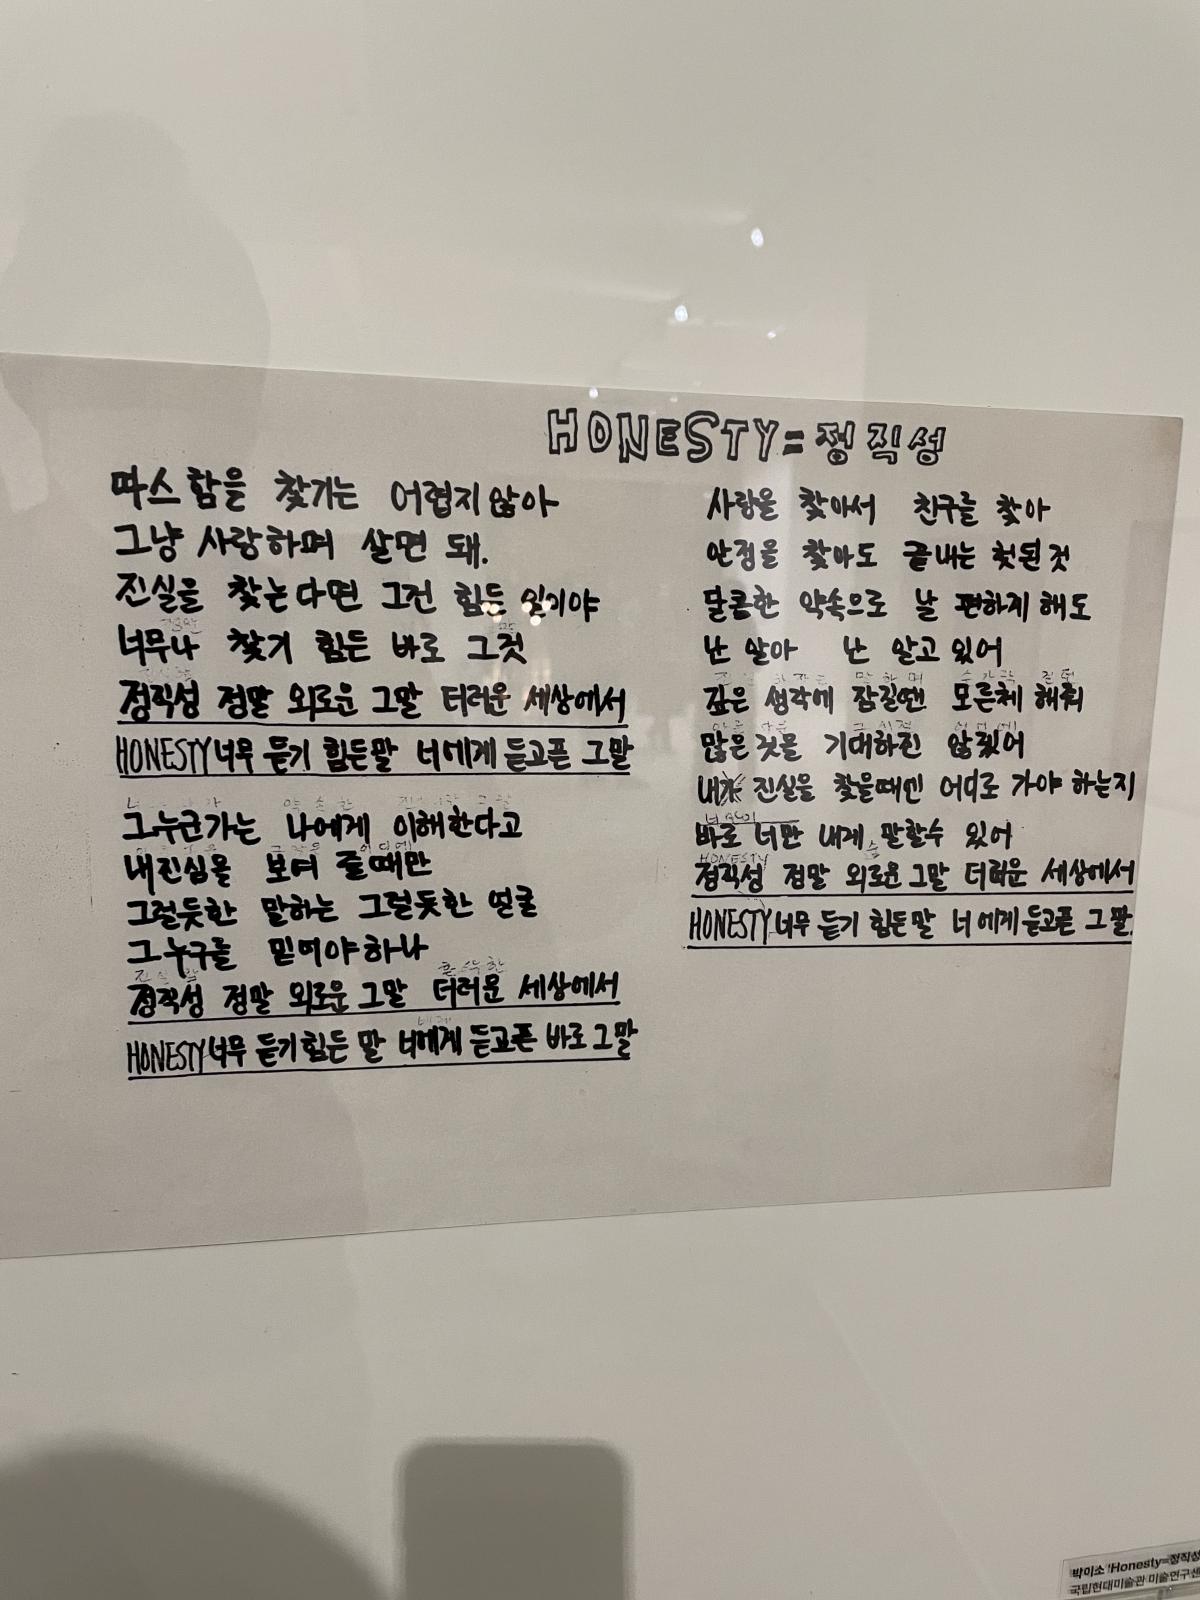 HONESTY=정직성
따스함을 찾기는 어렵지않아
그냥 사랑하며 살면 돼.
진실을 찾는다면 그건 힘든 일이야
너무나 찾기 힘든 바로 그것
정직성 정말 외로운 그말 더러운 세상에서
HONESTY 너무 듣기 힘든말 너에게 듣고픈 그말
그누군가는 나에게 이해한다고
내진심을 보여 줄때만
그럴듯한 말하는 그럴듯한 얼굴
그누구를 믿어야하나
정직성 정말 외로운 그말 더러운 세상에서
HONESTY 너무 듣기힘든 말 너에게 듣고픈 바로 그말
사랑을 찾아서 친구를 찾아
안정을 찾아도 끝내는 헛된것
달콤한 약속으로 날 편하게 해도
난 알아 난 알고 있어
깊은 생각에 잠길땐 모른체 해줘
많은것을 기대하진 않겠어
내가 진실을 찾을때엔 어디로 가야 하는지
바로 너만 내게 말할수 있어
HONESTY
정직성 정말 외로운 그말 더러운 세상에서
HONESTY 너무 듣기 힘든말 너에게 듣고픈 그말.
박이소 'Honesty=정직성
국립현대미술관 미술연구센